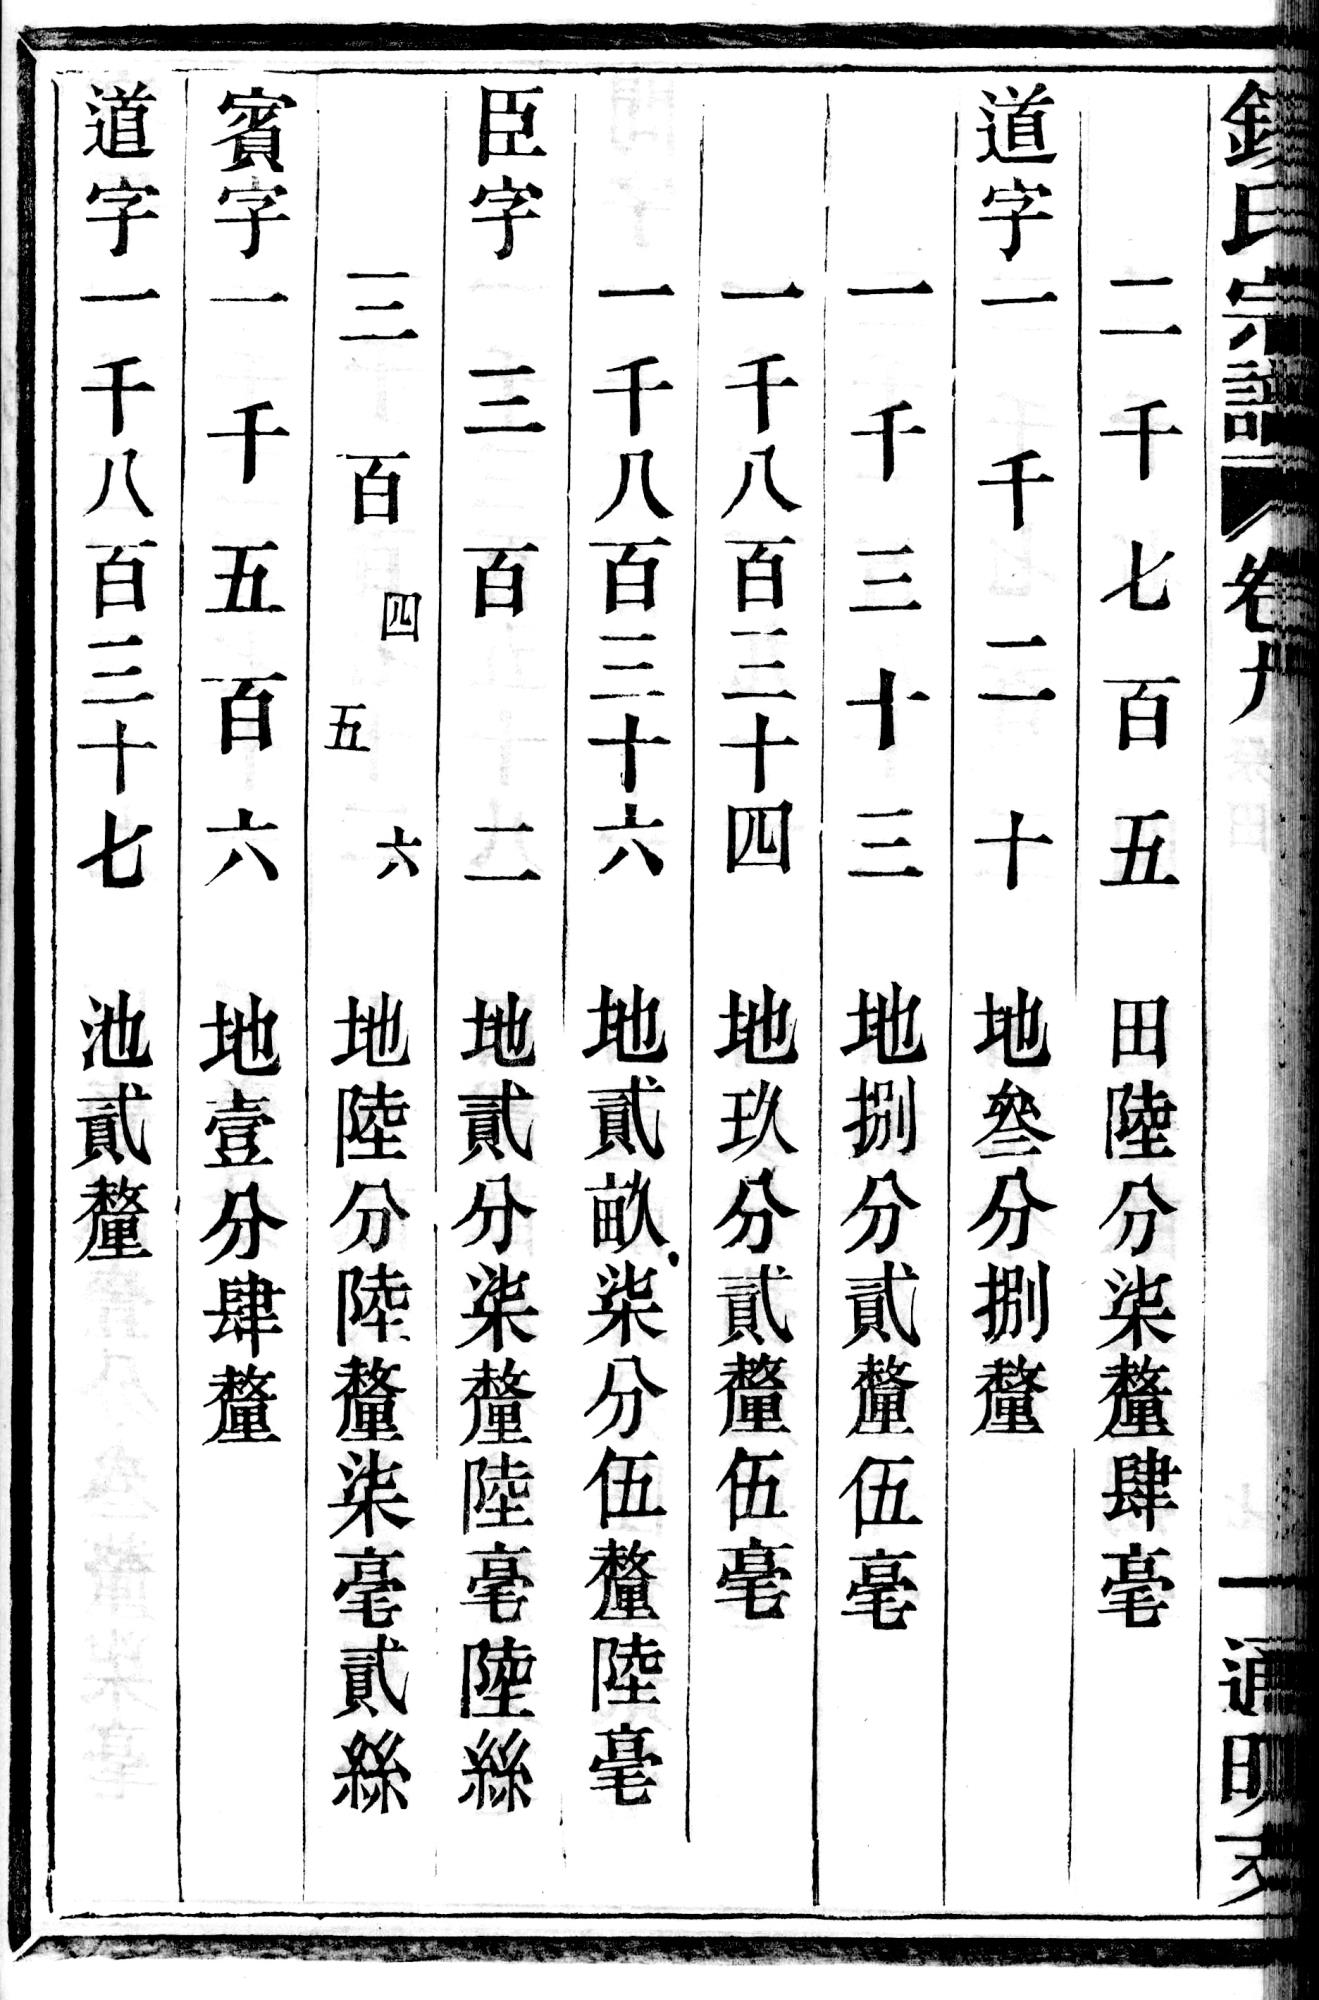 氏宗譜 卷 一 通明
二千七百五 田陸分柒釐肆毫
道字一千二十 地叄分捌釐
一千三十三 地捌分貳釐伍毫
一千八百三十四 地玖分貳釐伍毫
一千八百三十六 地貳畝柒分伍釐陸毫
臣字三百二 地貳分柒釐陸毫陸絲
三百四五六 地陸分陸釐柒毫貳絲
賓字一千五百六 地壹分肆釐
道字一千八百三十七 池貳釐